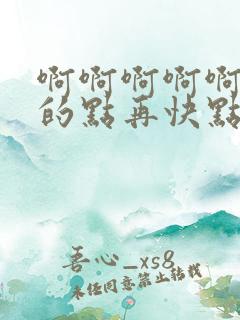 啊啊啊啊啊
的點再快點
吾心_xs8
未经同意禁止转载